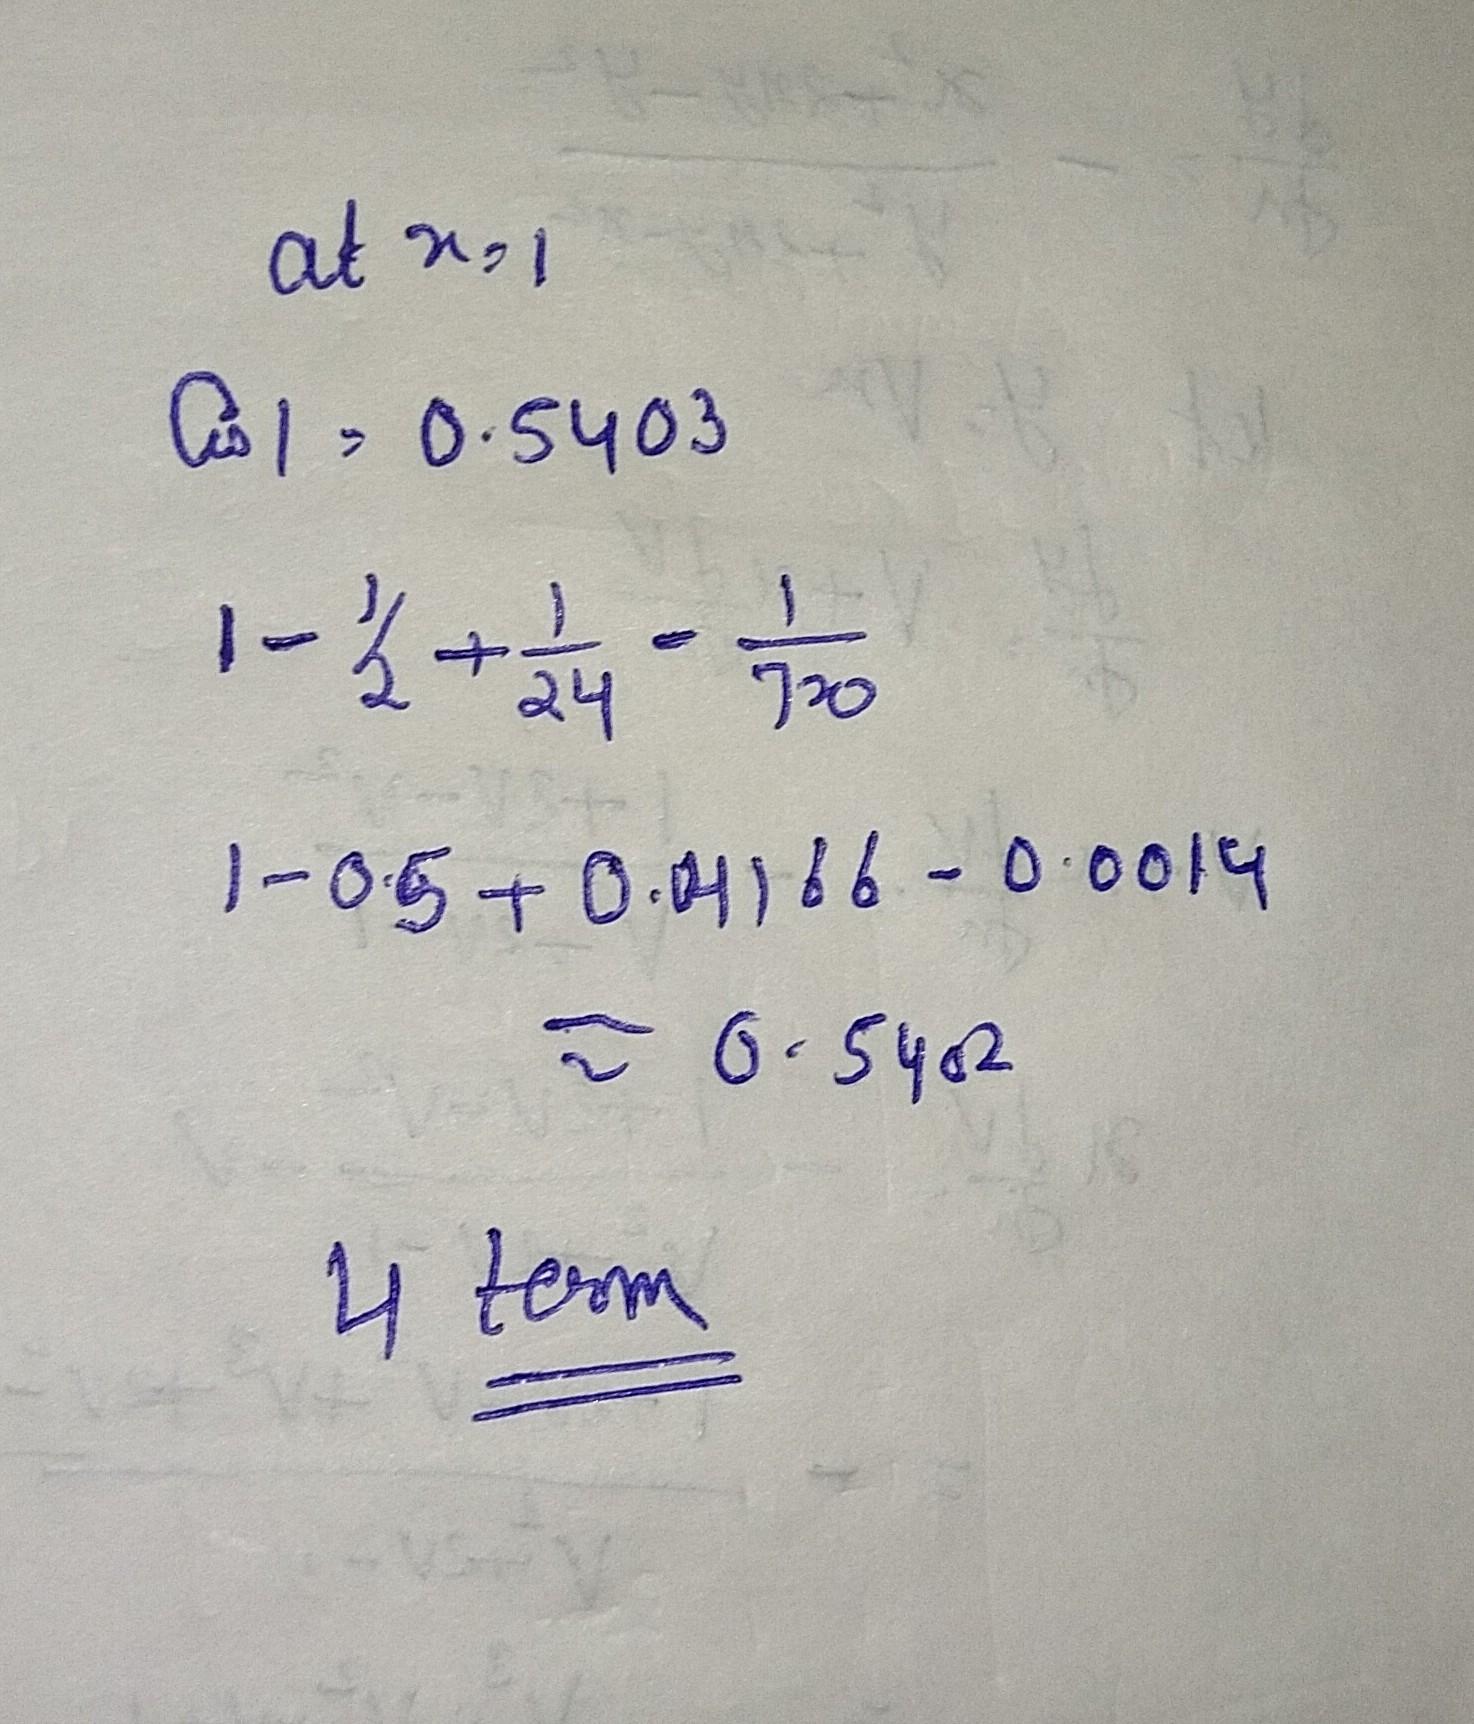 at x=1
Cos 1 = 0.5403
1 - 1/2 + 1/24 - 1/720
1 - 0.5 + 0.04166 - 0.0014
≈ 0.5402
4 term